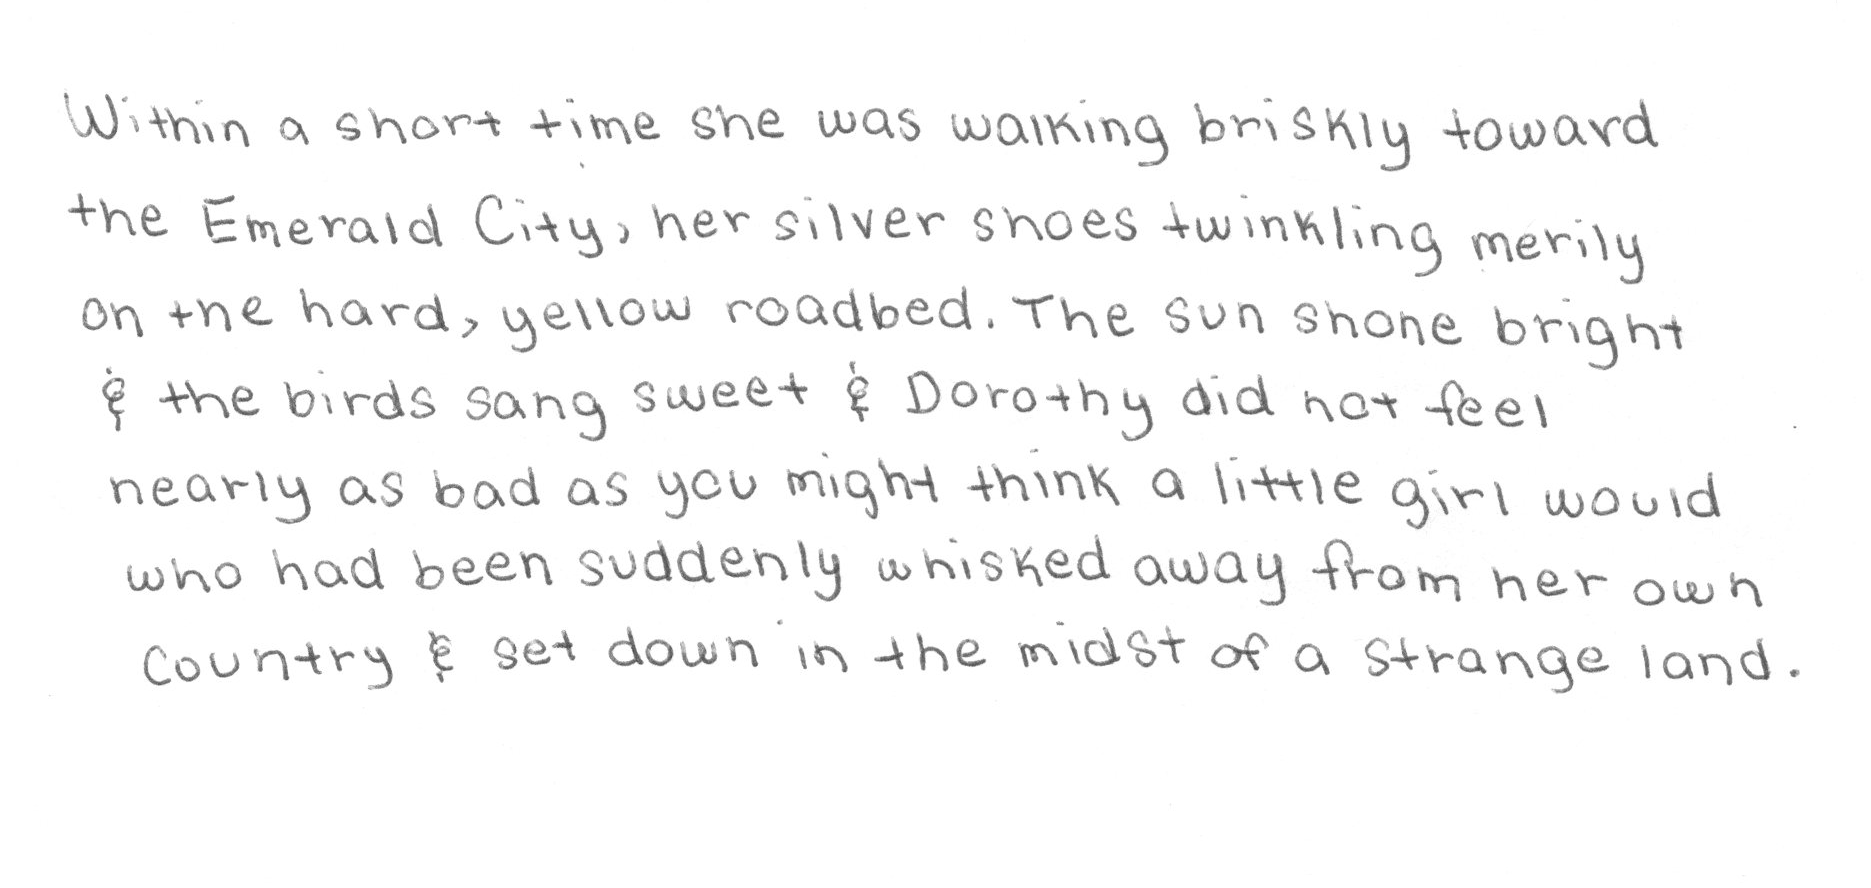 Within a short time she was walking briskly toward
the Emerald City, her silver shoes twinkling merily
on the hard, yellow roadbed. The sun shone bright
& the birds sang sweet & Dorothy did not feel
nearly as bad as you might think a little girl would
who had been suddenly whisked away from her own
Country & set down in the midst of a strange land.